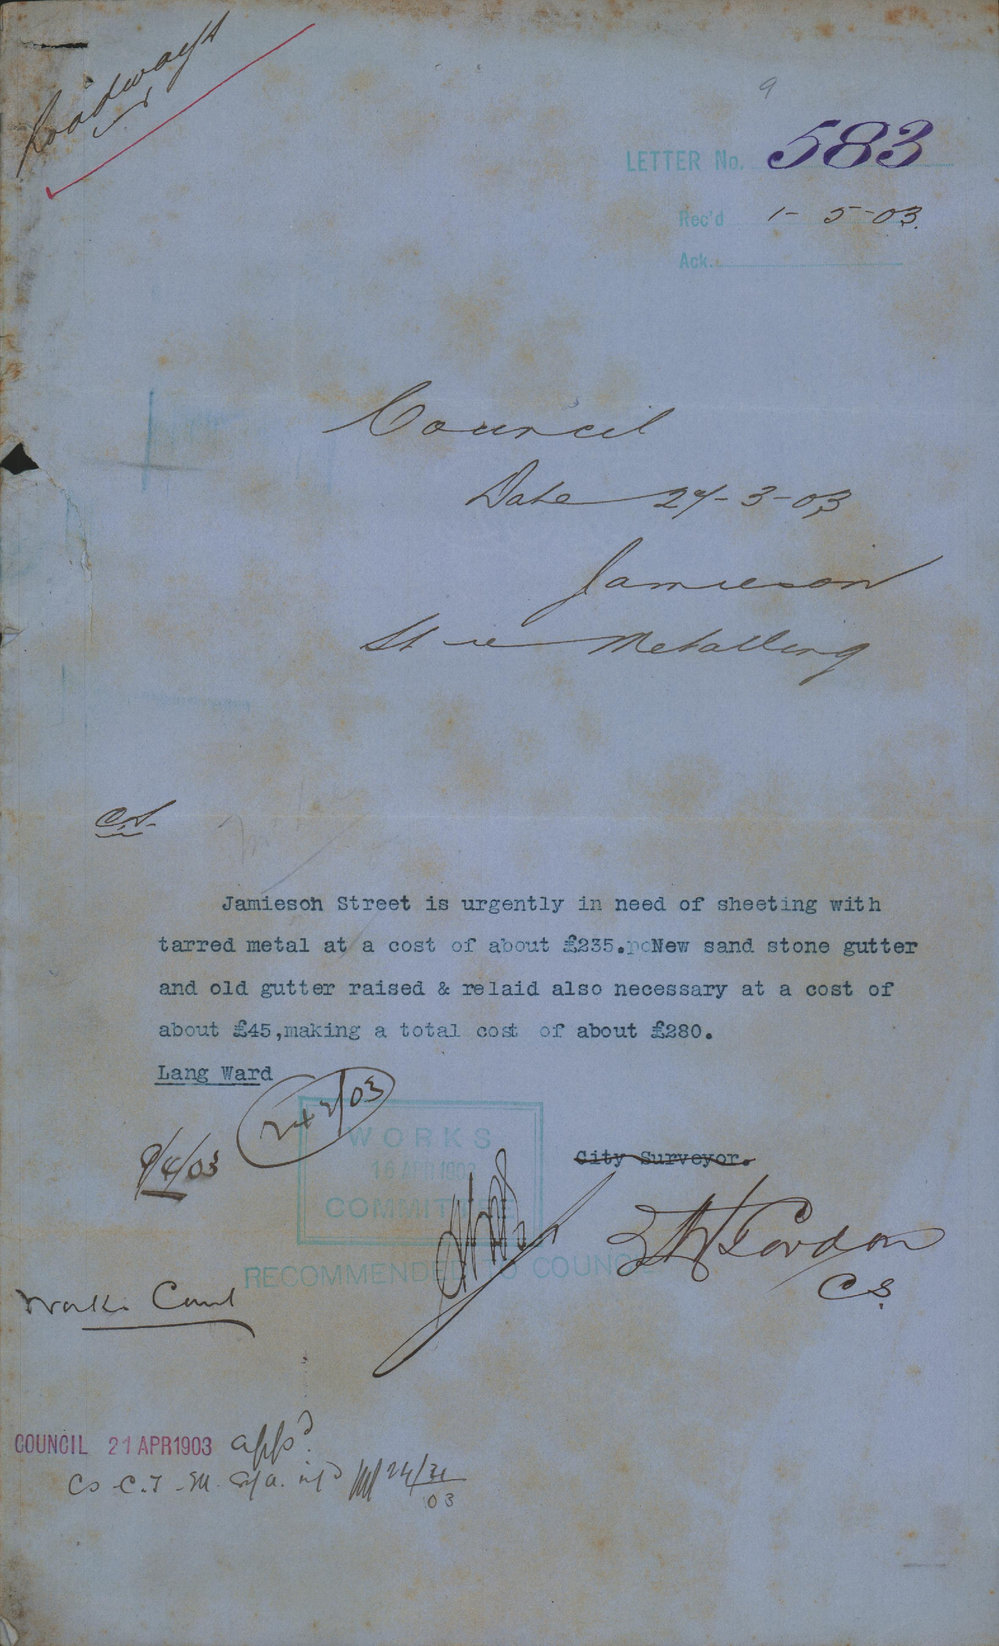 Roadways
9
LETTER No. 583
Rec'd 1-5-03.
Ack.
Council
Date 24-3-03
Jamieson
St re Metalling
C.S.
Jamieson Street is urgently in need of sheeting with
tarred metal at a cost of about £235. New sand stone gutter
and old gutter raised & relaid also necessary at a cost of
about £45,making a total cost of about £280.
Lang Ward
9/4/03
WORKS
16 APR 1903
COMMITTEE
City Surveyor.
Gordon
C S.
RECOMMENDED TO COUNCIL
Works Comt
COUNCIL 21 APR 1903 appd.
03